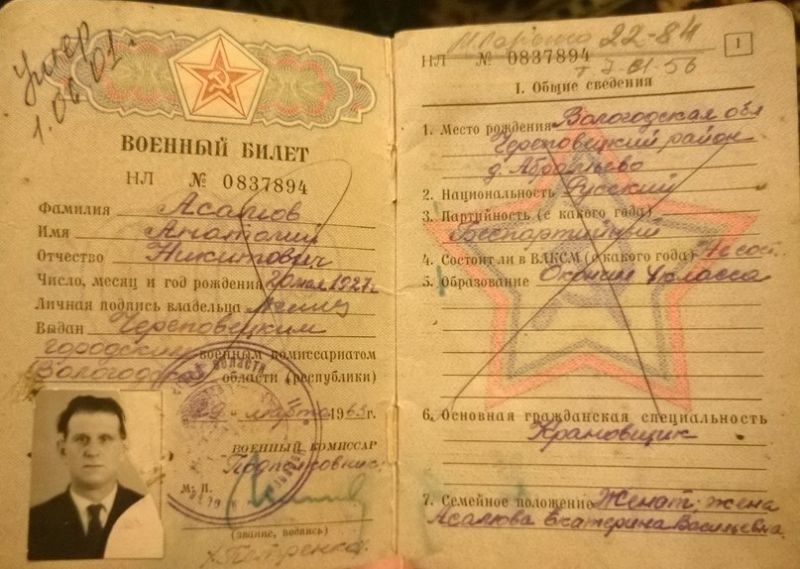 Умер
1.06.01г.
ВОЕННЫЙ БИЛЕТ
НЛ № 0837894
Фамилия Асалюв
Имя Анатолий
Отчество Никитович
Число, месяц и год рождения 20 мая 1927г
Личная подпись владельца
Выдан Череповецким
городским военным комиссариатом
Вологодской области (республики)
29 " марта 1963 г.
ВОЕННЫЙ КОМИССАР
Подполковник
М. П.
(звание, подпись)
22-84
НЛ № 0837894
1
т 7-01-56
I. Общие сведения
1. Место рождения Вологодская обл
Череповецкий район
д.
2. Национальность Русский
3. Партийность (с какого года)
Беспартийный
4. Состоял ли в ВЛКСМ (с какого года) Не сост.
5. Образование Окончил 4 класса
6. Основная гражданская специальность
Крановщик
7. Семейное положение Женат, жена
Асалюва Екатерина Васильевна